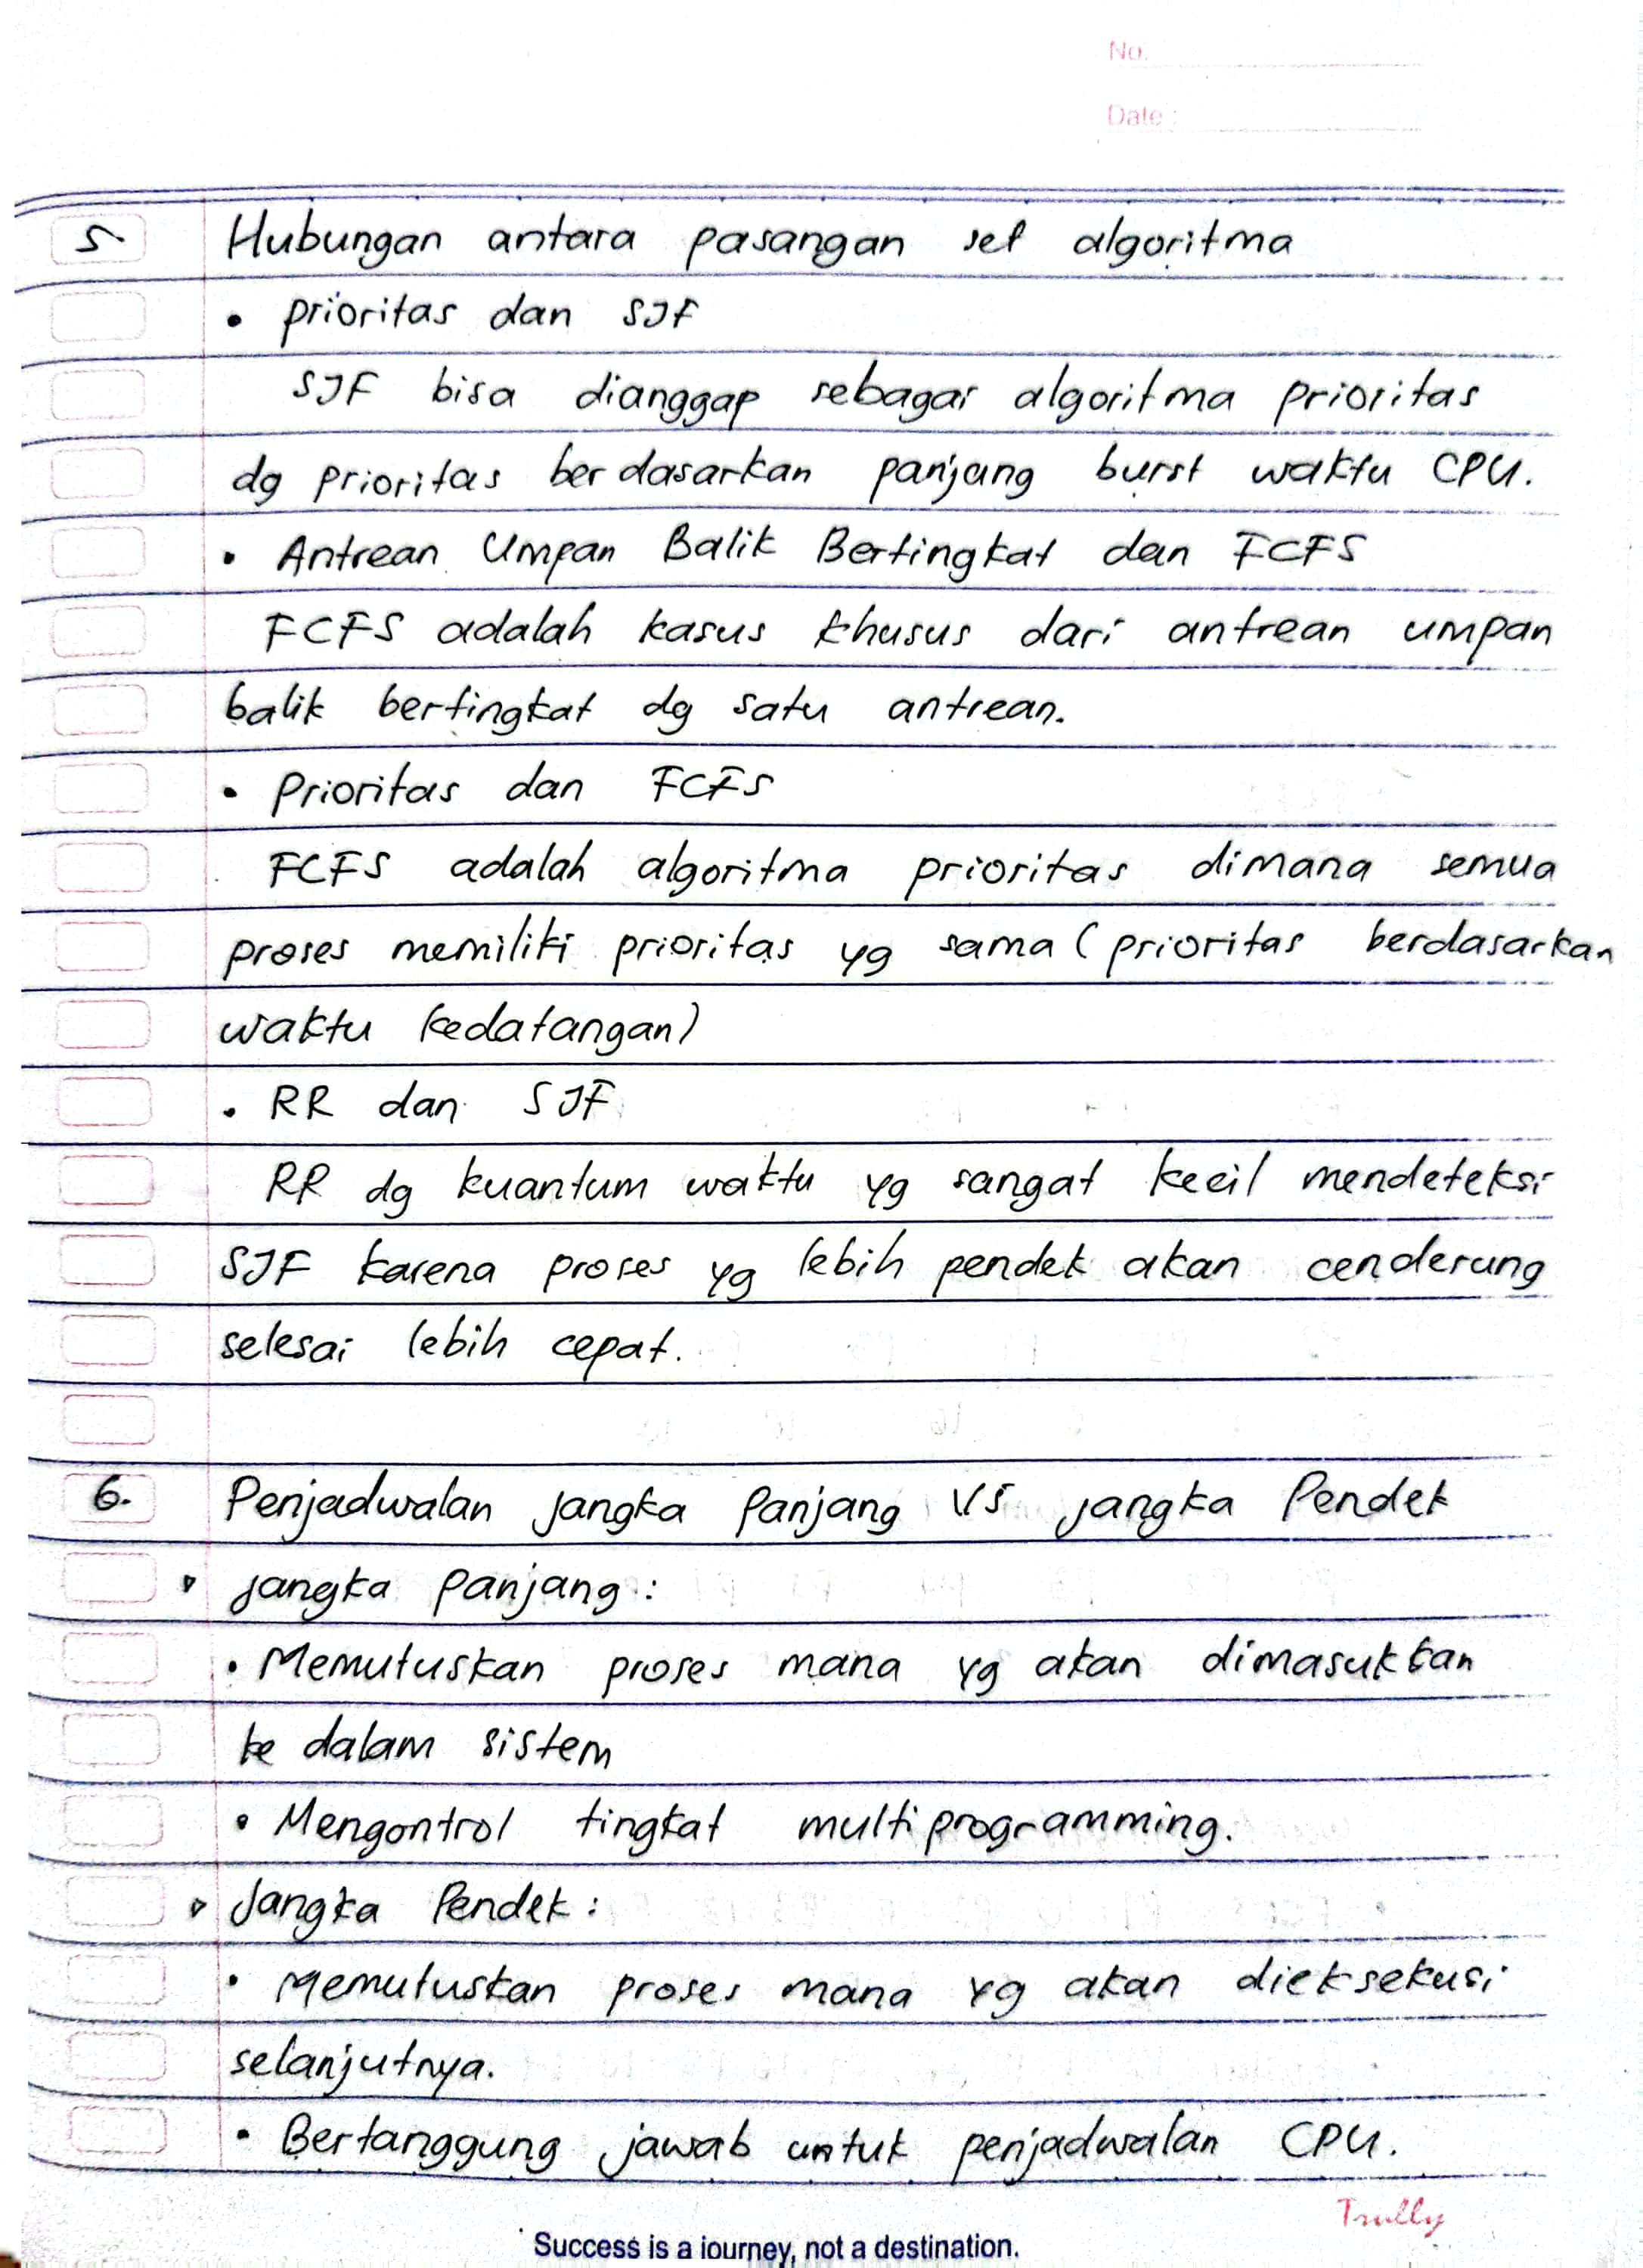 No.
Date :
5. Hubungan antara pasangan set algoritma
• prioritas dan SJF
SJF bisa dianggap sebagai algoritma prioritas
dg prioritas berdasarkan panjang burst waktu CPU.
• Antrean Umpan Balik Bertingkat dan FCFS
FCFS adalah kasus khusus dari antrean umpan
balik bertingkat dg satu antrean.
• Prioritas dan FCFS
FCFS adalah algoritma prioritas dimana semua
proses memiliki prioritas yg sama (prioritas berdasarkan
waktu kedatangan)
• RR dan SJF
RR dg kuantum waktu yg sangat kecil mendeteksi
SJF karena proses yg lebih pendek akan cenderung
selesai lebih cepat.
6. Penjadwalan Jangka Panjang VS Jangka Pendek
Jangka Panjang :
• Memutuskan proses mana yg akan dimasukkan
ke dalam sistem
• Mengontrol tingkat multiprogramming.
Jangka Pendek :
• Memutuskan proses mana yg akan dieksekusi
selanjutnya.
• Bertanggung jawab untuk penjadwalan CPU.
Trully
Success is a journey, not a destination.